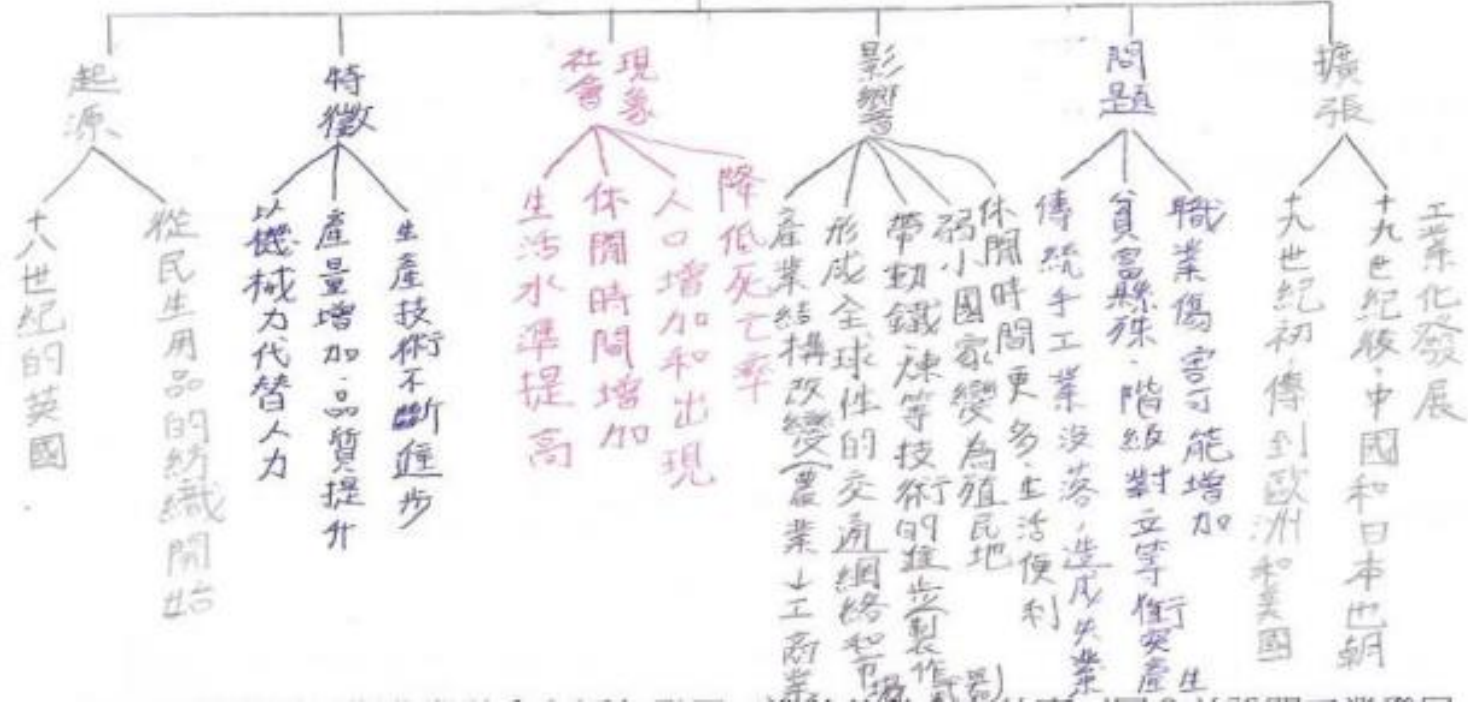 起源
十八世紀的英國
從民生用品的紡織開始
特徵
以機械力代替人力
產量增加.品質提升
生產技術不斷進步
社會現象
生活水準提高
休閒時間增加
人口增加和出現
降低死亡率
影響
產業結構改變(農業↓工商業
形成全球性的交通網絡和市場
帶動鐵.煉等技術的進步製作武器
弱小國家變為殖民地
休閒時間更多.生活便利
問題
傳統手工業沒落,造成失業
貧富懸殊.階級對立等衝突產生
職業傷害可能增加
擴張
十九世紀初.傳到歐洲和美國
十九世紀後.中國和日本也朝
工業化發展